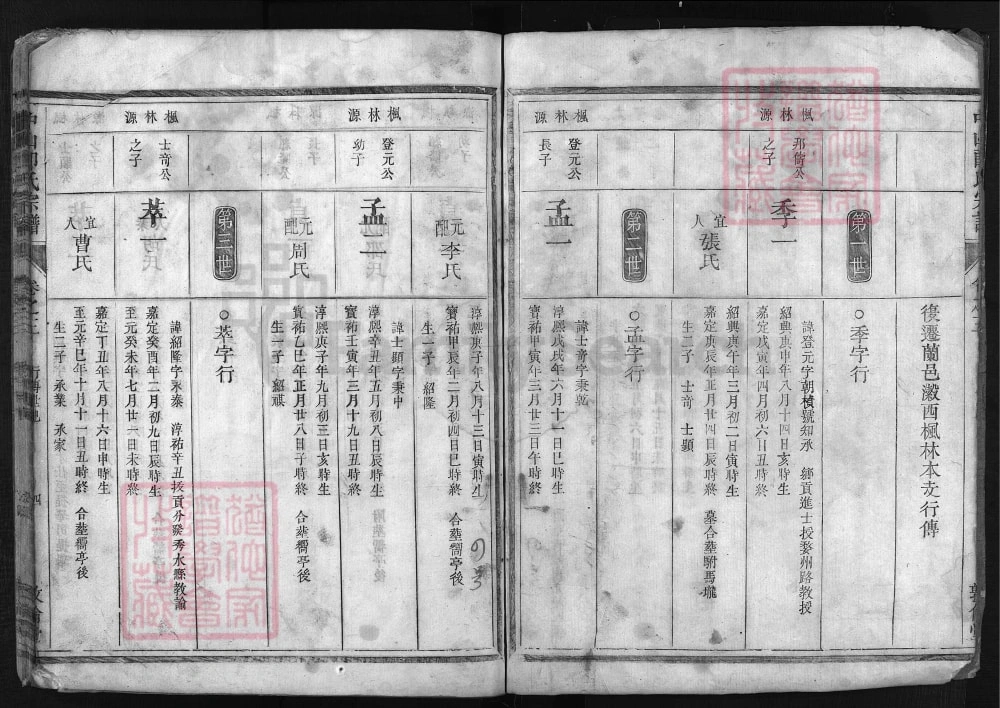 復遷蘭邑瀫西楓林本支行傳
第一世
○季字行
楓林源
那衛公
之子
季一
諱登元字朝楨號知承　鄉貢進士授婺州路教授
紹興庚申年八月十四日亥時生
嘉定戊寅年四月初六日丑時終
宜人
張氏
紹興庚午年三月初二日寅時生
嘉定庚辰年正月廿四日辰時終　墓合葬駙馬壠
生二子　士奇　士顯
第二世
○孟字行
楓林源
登元公
長子
孟一
諱士奇字秉乾
淳熙戊戌年六月十一日巳時生
寶祐甲寅年三月廿三日午時終
元配
李氏
淳熙庚子年八月十三日寅時生
寶祐甲辰年二月初四日巳時終　合葬衕亭後
生一子　紹隆
楓林源
登元公
幼子
孟二
諱士顯字秉中
淳熙辛丑年五月初八日辰時生
寶祐壬寅年三月十九日丑時終
元配
周氏
淳熙庚子年九月初三日亥時生
寶祐乙巳年正月廿八日子時終　合葬衕亭後
生一子　紹祺
第三世
○萃字行
楓林源
士奇公
之子
萃一
諱紹隆字永泰　淳祐辛丑拔貢分發秀水縣教諭
嘉定癸酉年二月初九日辰時生
至元癸未年七月廿一日未時終
宜人
曹氏
嘉定丁丑年八月十六日申時生
至元辛巳年十月十一日丑時終　合葬衕亭後
生二子　承業　承家
氏宗譜
卷之三
行傳
四